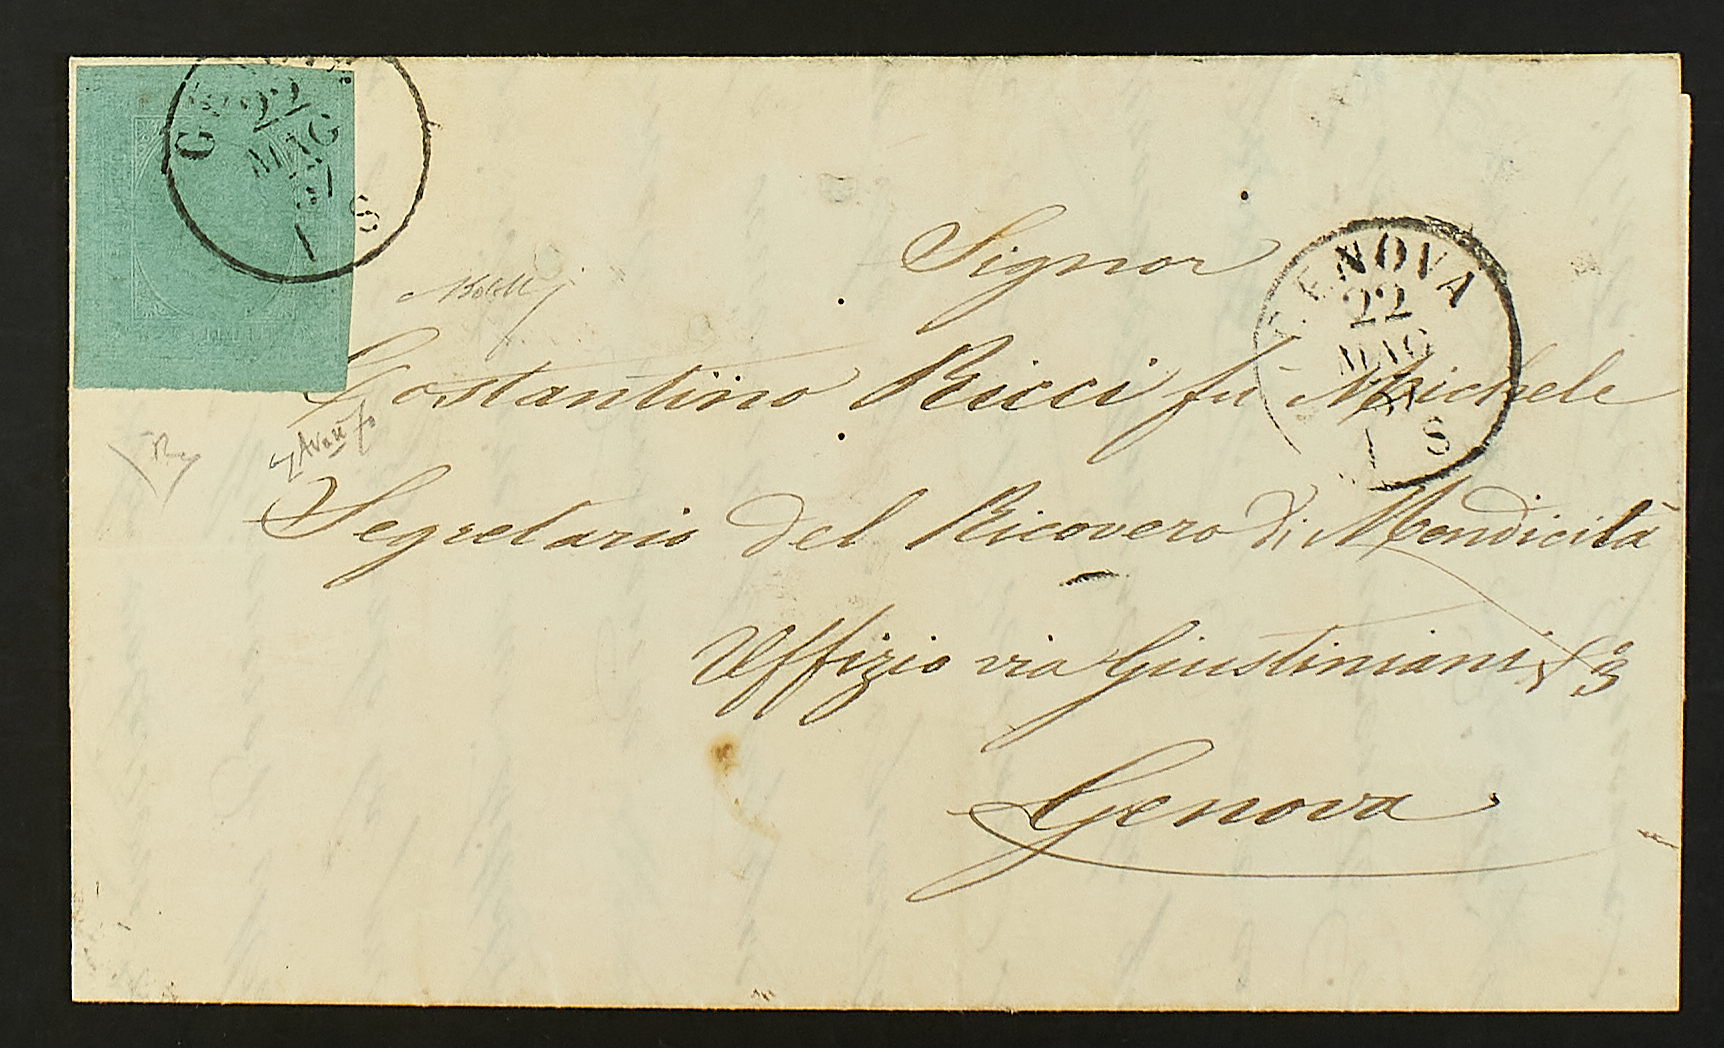 G
22
MAG
S
Signor
GENOVA
22
MAG
S
Costantino Ricci fu Michele
Segretario del Ricovero di Mendicità
Uffizio via Giustiniani 3
Genova